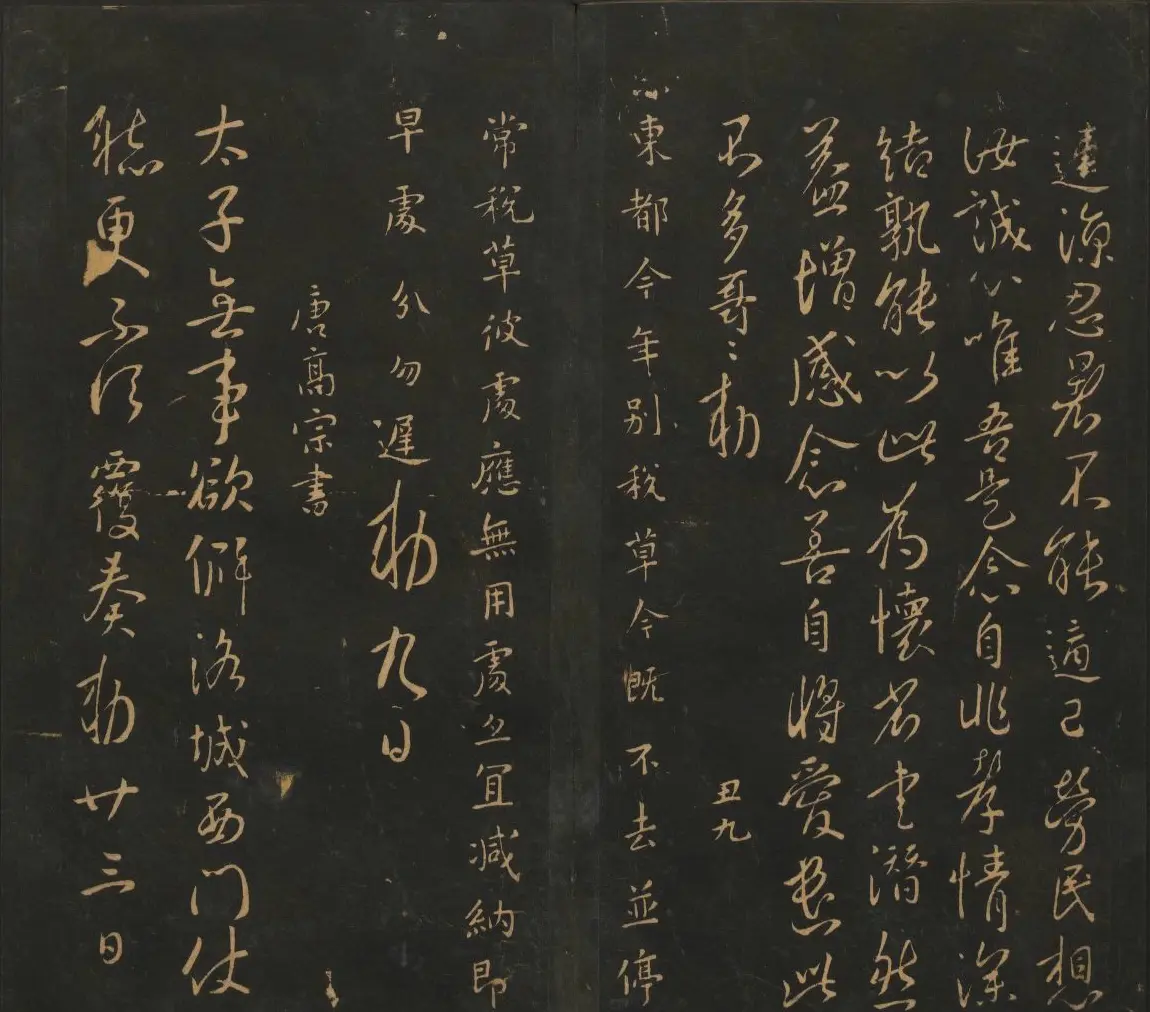 違涼忍暑不能適己勞民想
汝誠心唯吾是念自非孝情深
結孰能以此為懷省書潛然
益增感念善自將愛遣此
不多哥〻敕
丑九
東都今年別税草今既不去並停
常税草彼處應無用處亦宜減納即
早處分勿遲敕九日
唐高宗書
太子無事欲解洛城西門仗
聽更不須覆奏敕廿三日